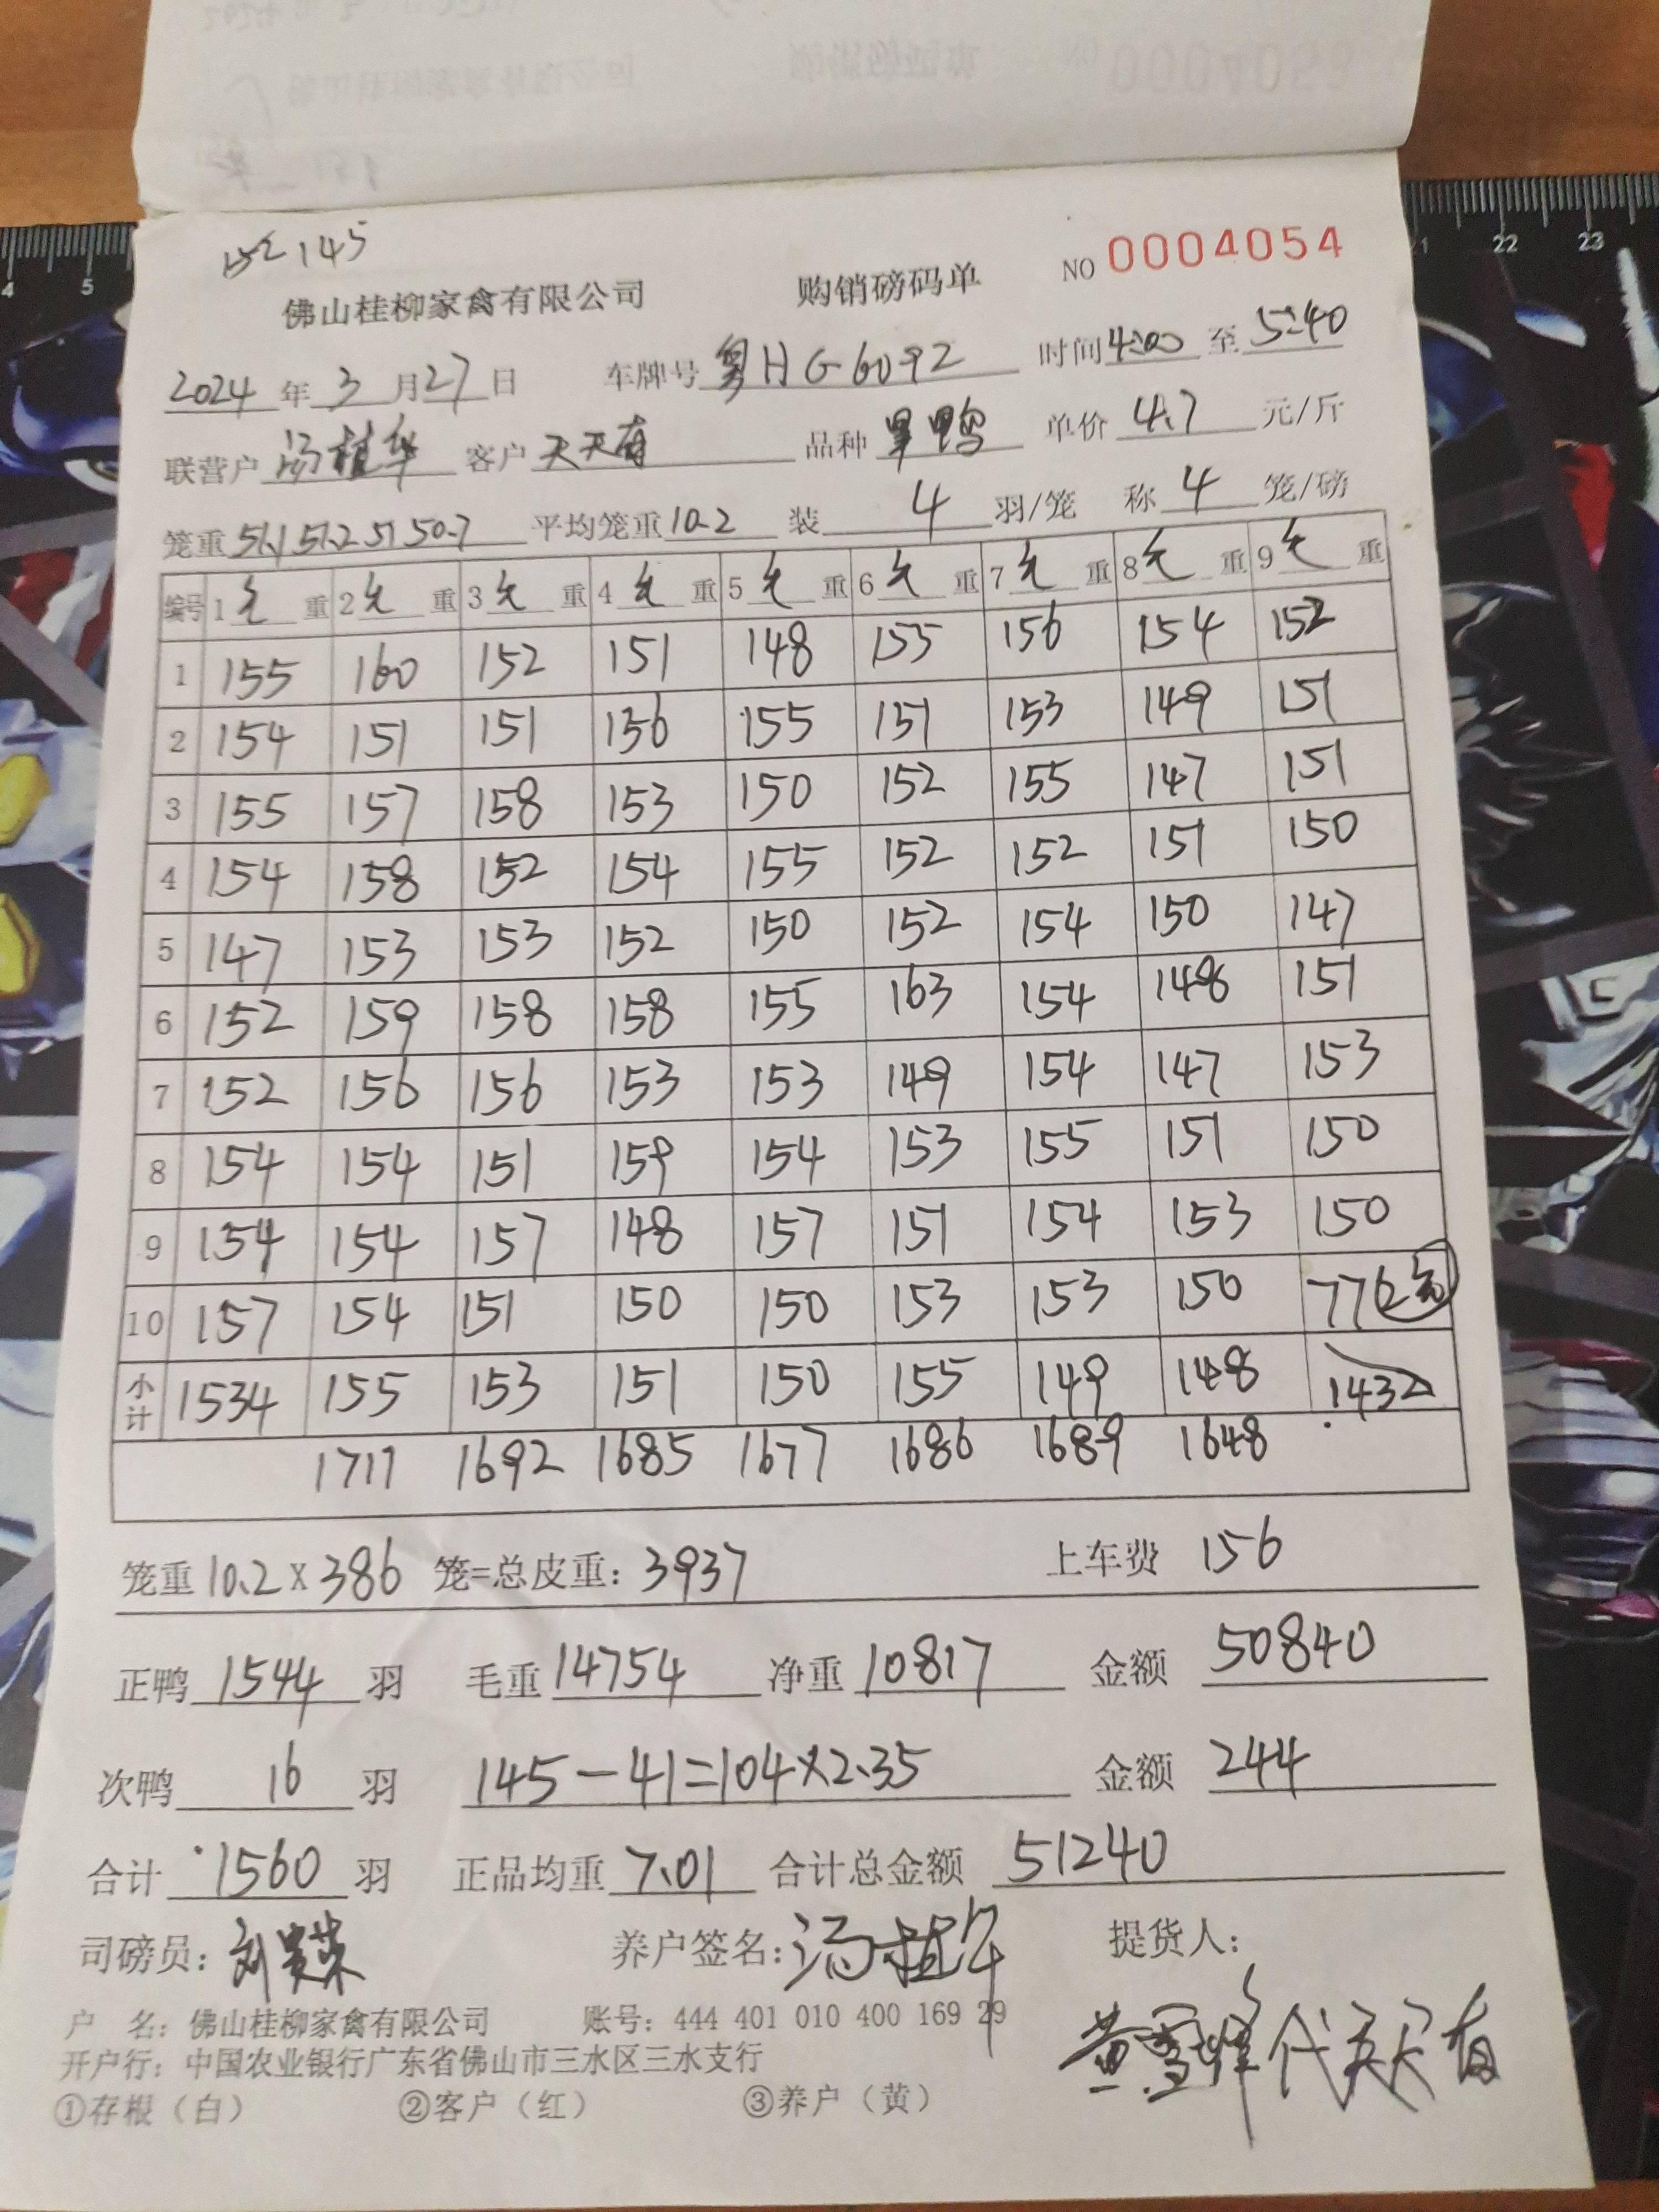 152 145
佛山桂柳家禽有限公司 购销磅码单 NO 0004054
2024年3月27日 车牌号 粤HG6092 时间4:00至5:40
联营户 汤植华 客户 天天有 品种 旱鸭 单价 4.7 元/斤
笼重 51.1 51.2 51 50.7 平均笼重10.2 装 4 羽/笼 称 4 笼/磅
编号 1毛重 2毛重 3毛重 4毛重 5毛重 6毛重 7毛重 8毛重 9毛重
1 155 160 152 151 148 155 156 154 152
2 154 151 151 156 155 151 153 149 151
3 155 157 158 153 150 152 155 147 151
4 154 158 152 154 155 152 152 151 150
5 147 153 153 152 150 152 154 150 147
6 152 159 158 158 155 163 154 148 151
7 152 156 156 153 153 149 154 147 153
8 154 154 151 159 154 153 155 151 150
9 154 154 157 148 157 151 154 153 150
10 157 154 151 150 150 153 153 150 77
小计 1534 155 153 151 150 155 149 148 1432
1711 1692 1685 1677 1686 1689 1648
笼重10.2×386 笼=总皮重：3937 上车费 156
正鸭 1544 羽 毛重14754 净重10817 金额 50840
次鸭 16 羽 145-41=104×2.35 金额 244
合计 1560 羽 正品均重 7.01 合计总金额 51240
司磅员： 养户签名：汤植华 提货人：
户 名：佛山桂柳家禽有限公司 账号：444 401 010 400 169 29
黄雪锋代天天有
开户行：中国农业银行广东省佛山市三水区三水支行
①存根（白） ②客户（红） ③养户（黄）